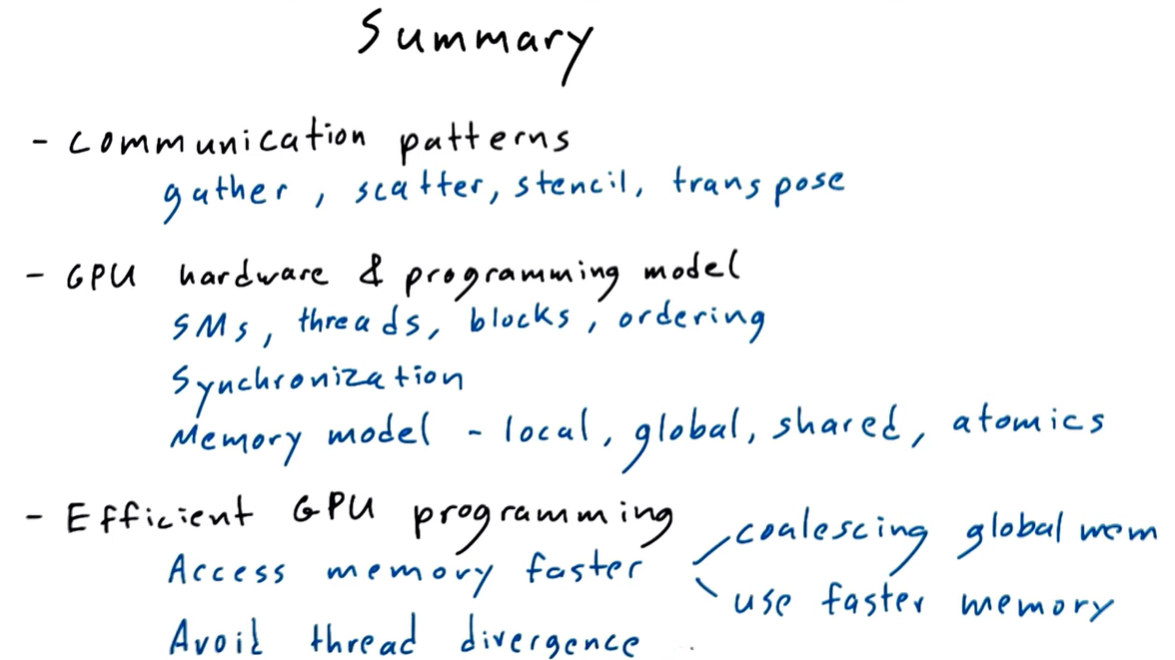 Summary
- Communication patterns
gather, scatter, stencil, transpose
- GPU hardware & programming model
SMs, threads, blocks, ordering
Synchronization
Memory model - local, global, shared, atomics
- Efficient GPU programming
coalescing global mem
Access memory faster
use faster memory
Avoid thread divergence